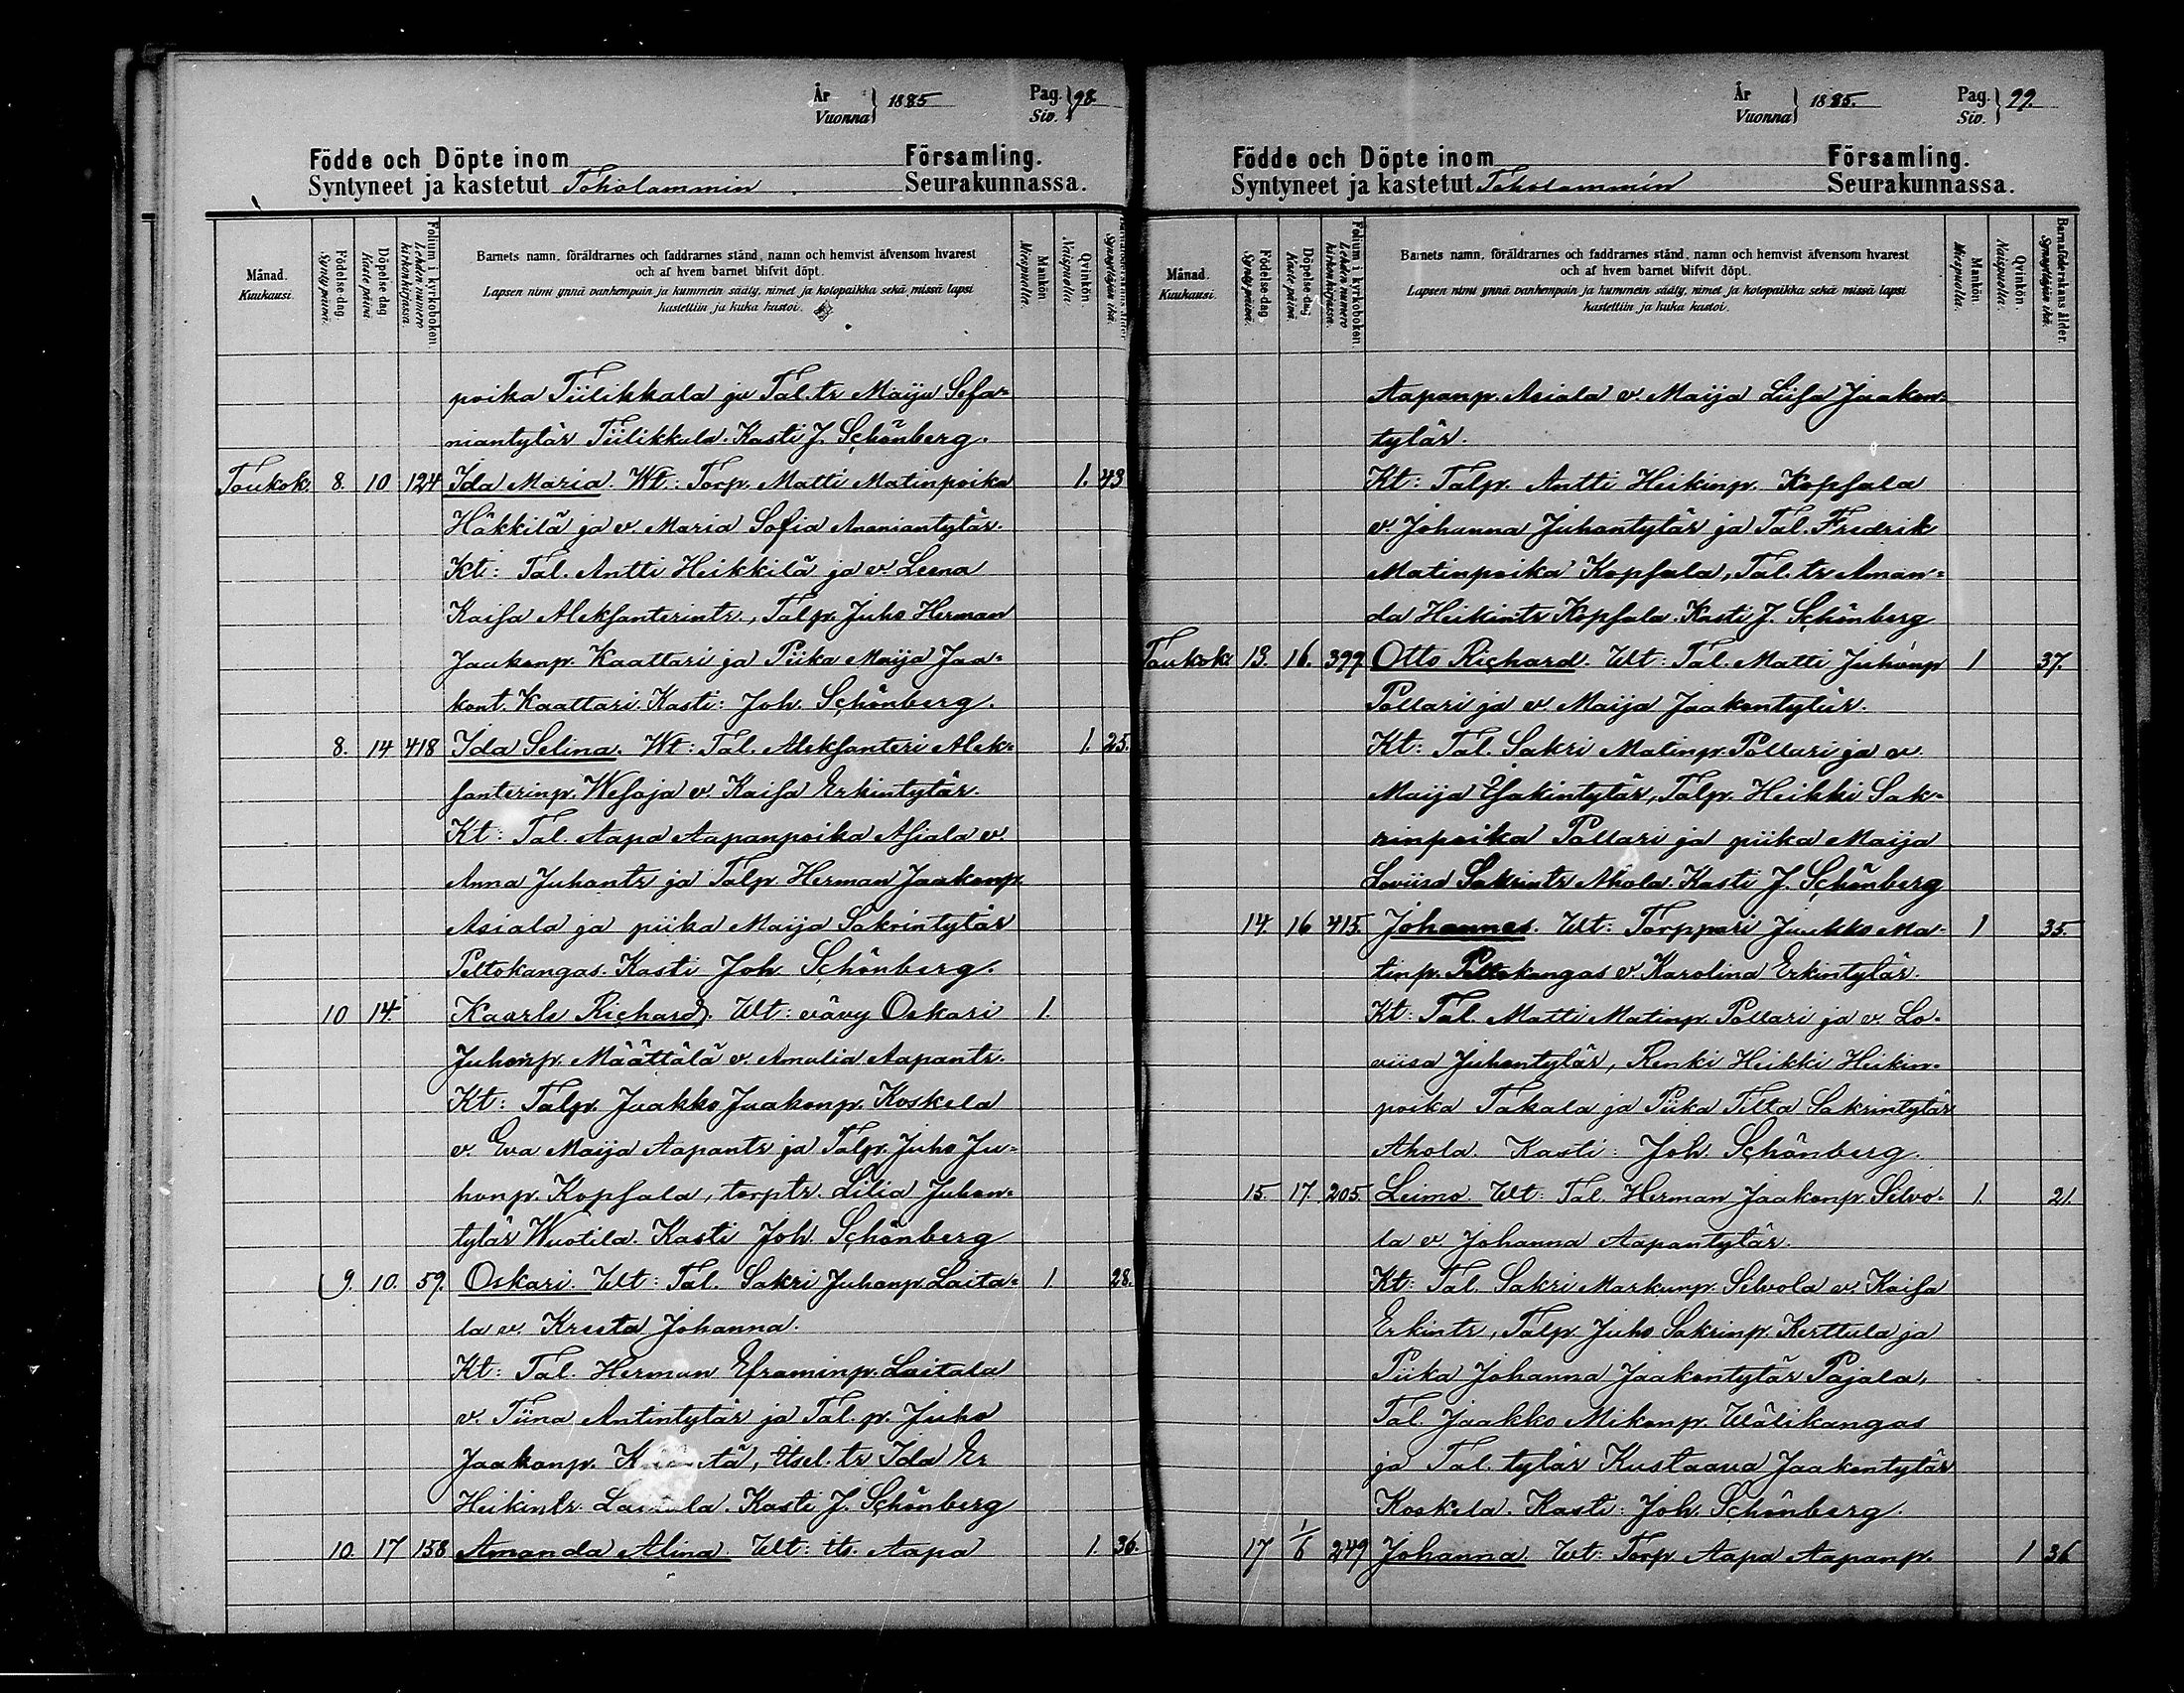 År Vuonna } 1885 Pag. Siv. } 98.
Födde och Döpte inom Församling.
Syntyneet ja kastetut Toholammin Seurakunnassa.
Månad. Kuukausi.
Födelse-dag. Synty päivä.
Döpelse-dag Kaste päivä
Folium i kyrkoboken. Lehden numero kirkonkirjassa.
Barnets namn, föräldrarnes och faddrarnes stånd, namn och hemvist äfvensom hvarest
och af hvem barnet blifvit döpt.
Lapsen nimi ynnä vanhempain ja kummein sääty, nimet ja kotopaikka sekä missä lapsi
kastettiin ja kuka kastoi.
Mankön Miespuolta.
Qvinkön. Naispuolta.
Synnyttäjän ikä.
poika Tiilikkala ja Tal. tr Maija Sefa-
niantytär Tiilikkala. Kasti J. Schönberg.
Toukok. 8. 10 124 Ida Maria. Wt: Torp. Matti Matinpoika 1. 43
Häkkilä ja v. Maria Sofia Ananiantytär.
Kt: Tal. Antti Heikkilä ja v. Leena
Kaisa Aleksanterintr., Talp. Juho Herman
Jaakonp. Kaattari ja Piika Maija Jaa-
kont. Kaattari. Kasti: Joh. Schönberg.
8. 14 418 Ida Selina. Wt: Tal. Aleksanteri Alek- 1. 25.
santerinp. Wesaja v. Kaisa Erkintytär.
Kt: Tal. Aapa Aapanpoika Asiala v.
Anna Juhontr ja Talp. Herman Jaakonp.
Asiala ja piika Maija Sakrintytär
Peltokangas. Kasti Joh. Schönberg.
10 14. Kaarle Richard. Wt: vävy Oskari 1.
Juhonp. Määttälä v. Amalia Aapantr.
Kt: Talp. Jaakko Jaakonp. Koskela
v. Eva Maija Aapantr ja Talp. Juho Ju-
honp. Kopsala, torptr. Lilia Juhon-
tytär Wuotila. Kasti Joh. Schönberg
9. 10. 59. Oskari. Wt: Tal. Sakri Juhonp. Laita- 1. 28.
la v. Kreeta Johanna.
Kt: Tal. Herman Eframinp. Laitala
v. Tiina Antintytär ja Tal. p. Juho
Jaakonp. Itsel. tr Ida Er.
Heikintr Laitala. Kasti J. Schönberg
10. 17 158 Amanda Alina. Wt: its. Aapa 1. 36.
År Vuonna } 1885. Pag. Siv. } 99.
Födde och Döpte inom Församling.
Syntyneet ja kastetut Toholammin Seurakunnassa.
Månad. Kuukausi.
Födelse-dag Synty päivä.
Döpelse-dag Kaste päivä.
Folium i kyrkoboken. Lehden numero kirkonkirjassa.
Barnets namn, föräldrarnes och faddrarnes stånd, namn och hemvist äfvensom hvarest
och af hvem barnet blifvit döpt.
Lapsen nimi ynnä vanhempain ja kummein sääty, nimet ja kotopaikka sekä missä lapsi
kastettiin ja kuka kastoi.
Mankön Miespuolta.
Qvinkön. Naispuolta.
Barnaföderskans ålder. Synnyttäjän ikä.
Aapanp. Asiala v. Maija Liisa Jaakon-
tytär.
Kt: Talp. Antti Heikinp. Kopsala
v. Johanna Juhontytär ja Tal. Fredrik
Matinpoika Kopsala, Tal. tr Aman-
da Heikintr Kopsala. Kasti J. Schönberg
Toukok. 13. 16. 399. Otto Richard. Wt: Tal. Matti Juhonp 1 37.
Pollari ja v. Maija Jaakontytär.
Kt: Tal. Sakri Matinp. Pollari ja v.
Maija Isakintytär, Talp. Heikki Sak-
rinpoika Pollari ja piika Maija
Loviisa Sakrintr Ahola. Kasti J. Schönberg
14. 16 415. Johannes. Wt: Torppari Jaakko Ma- 1 35.
tinp. Peltokangas v. Karolina Erkintytär.
Kt: Tal. Matti Matinp. Pollari ja v. Lo-
viisa Juhontytär, Renki Heikki Heikin-
poika Takala ja Piika Tilta Sakrintytär
Ahola. Kasti: Joh. Schönberg.
15. 17. 205. Leimo. Wt: Tal. Herman Jaakonp. Silvo- 1. 21.
la v. Johanna Aapantytär.
Kt: Tal. Sakri Markunp. Silvola v. Kaisa
Erkintr, Talp. Juho Sakrinp. Kerttula ja
Piika Johanna Jaakontytär Pajala,
Tal. Jaakko Mikonp. Wälikangas
ja Tal. tytär Kustaava Jaakontytär
Koskela. Kasti: Joh. Schönberg.
17 1/6 249 Johanna. Wt: Torp. Aapa Aapanp. 1 36